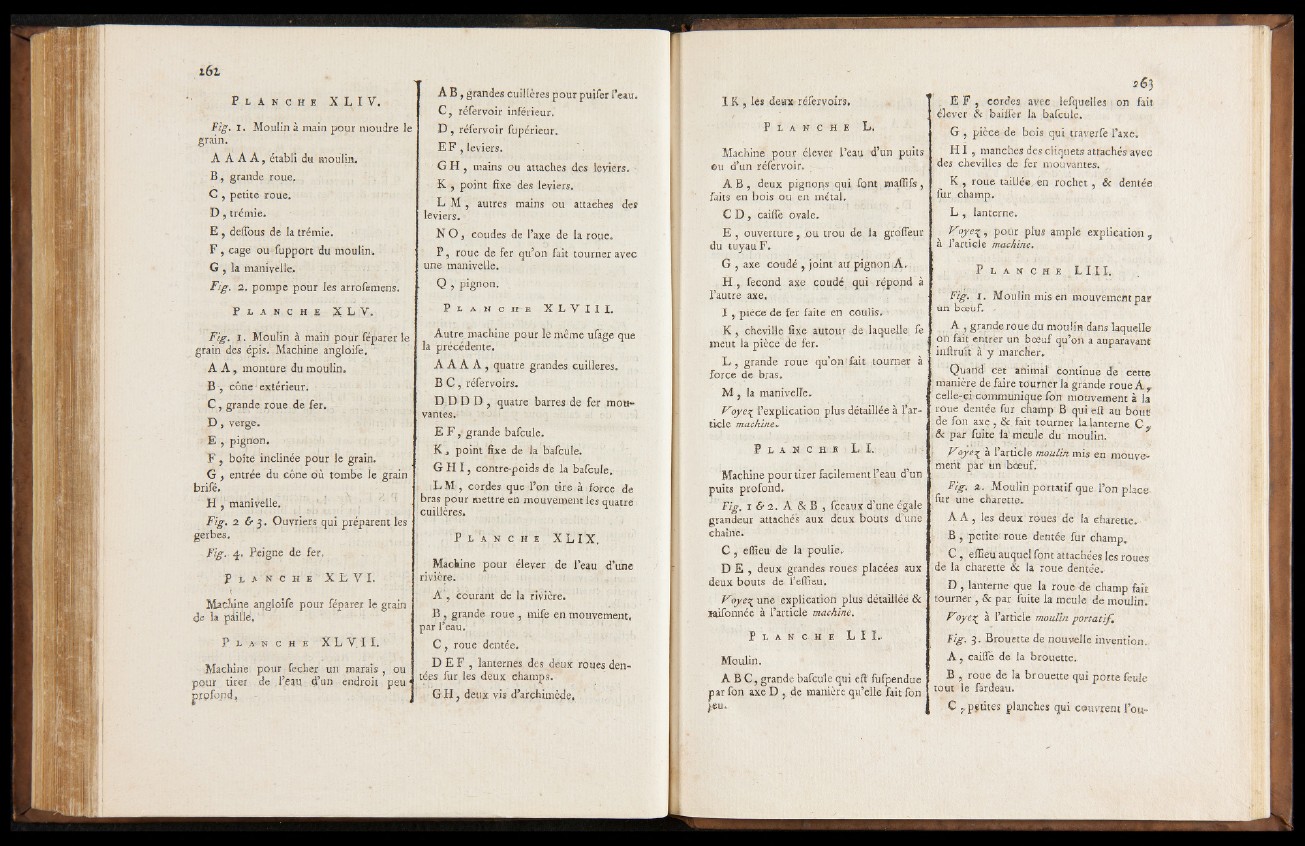 262
PLANCHE XLIV.
Fig. 1. Moulin à main pour moudre le
grain.
A A A A, établi du moulin.
B, grande roue.
C, petite roue.
D, trémie.
E, deſſous de la trémie.
F, cage ou ſupport du moulin.
G, la manivelle.
Fig. 2. pompe pour les arroſemens.
PLANCHE XLV.
Fig. 1. Moulin à main pour ſéparer le
grain des épis. Machine angloiſe.
A A, monture du moulin.
B, cône extérieur.
C, grande roue de fer.
D, verge.
E, pignon.
F, boîte inclinée pour le grain.
G, entrée du cône où tombe le grain
briſé.
H, manivelle.
Fig. 2 & 3. Ouvriers qui préparent les
gerbes.
Fig. 4. Peigne de fer.
PLANCHE XLVI.
Machine angloiſe pour ſéparer le grain
de la paille.
PLANCHE XLVII.
Machine pour ſecher un marais, ou
pour tirer de l'eau d'un endroit peu
profond.
A B, grandes cuillères pour puiſer l'eau.
C, réſervoir inférieur.
D, réſervoir ſupérieur.
E F, leviers.
G H, mains ou attaches des leviers.
K, point fixe des leviers.
L M, autres mains ou attaches des
leviers.
N O, coudes de l'axe de la roue.
P, roue de fer qu'on fait tourner avec
une manivelle.
Q, pignon.
PLANCHE XLVIII.
Autre machine pour le même uſage que
la précédente.
A A A A, quatre grandes cuilleres.
B C, réſervoirs.
D D D D, quatre barres de fer mou-
vantes.
E F, grande baſcule.
K, point fixe de la baſcule.
G H I, contre-poids de la baſcule.
L M, cordes que l'on tire à force de
bras pour mettre en mouvement les quatre
cuillères.
PLANCHE XLIX.
Machine pour élever de l'eau d'une
rivière.
A, courant de la rivière.
B, grande roue, miſe en mouvement,
par l'eau.
C, roue dentée.
D E F, lanternes des deux roues den-
tées ſur les deux champs.
G H, deux vis d'archimède.
263
I K, les deux réſervoirs.
PLANCHE L.
Machine pour élever l'eau d'un puits
ou d'un réſervoir.
A B, deux pignons qui ſont maſſifs,
faits en bois ou en métal.
C D, caiſſe ovale.
E, ouverture, ou trou de la groſſeur
du tuyau F.
G, axe coudé, joint au pignon A.
H, ſecond axe coudé qui répond à
l'autre axe.
I, piece de fer faite en coulis.
K, cheville fixe autour de laquelle ſe
meut la pièce de fer.
L, grande roue qu'on fait tourner à
force de bras.
M, la manivelle.
Voyez l'explication plus détaillée à l'ar-
ticle machine.
PLANCHE LI.
Machine pour tirer facilement l'eau d'un
puits profond.
Fig. 1 & 2. A & B, ſceaux d'une égale
grandeur attachés aux deux bouts d'une
chaîne.
C, eſſieu de la poulie.
D E, deux grandes roues placées aux
deux bouts de l'eſſieu.
Voyez une explication plus détaillée &
raiſonnée à l'article machine.
PLANCHE LII.
Moulin.
A B C, grande baſcule qui eſt ſuſpendue
par ſon axe D, de manière qu'elle fait ſon
jeu.
E F, cordes avec leſquelles on fait
élever & baiſſer la baſcule.
G, pièce de bois qui traverſe l'axe.
H I, manches des cliquets attachés avec
des chevilles de fer mouvantes.
K, roue taillée en rochet, & dentée
ſur champ.
L, lanterne.
Voyez, pour plus ample explication,
à l'article machine.
PLANCHE LIII.
Fig. 1. Moulin mis en mouvement par
un bœuf.
A, grande roue du moulin dans laquelle
on fait entrer un bœuf qu'on a auparavant
inſtruit à y marcher.
Quand cet animal continue de cette
manière de faire tourner la grande roue A,
celle-ci communique ſon mouvement à la
roue dentée ſur champ B qui eſt au bout
de ſon axe, & fait tourner la lanterne C,
& par ſuite la meule du moulin.
Voyez à l'article moulin mis en mouve-
ment par un bœuf.
Fig. 2. Moulin portatif que l'on place
ſur une charette.
A A, les deux roues de la charette.
B, petite roue dentée ſur champ.
C, eſſieu auquel ſont attachées les roues
de la charette & la roue dentée.
D, lanterne que la roue de champ fait
tourner, & par ſuite la meule de moulin.
Voyez à l'article moulin portatif.
Fig. 3. Brouette de nouvelle invention.
A, caiſſe de la brouette.
B, roue de la brouette qui porte ſeule
tout le fardeau.
C, petites planches qui couvrent l'ou-